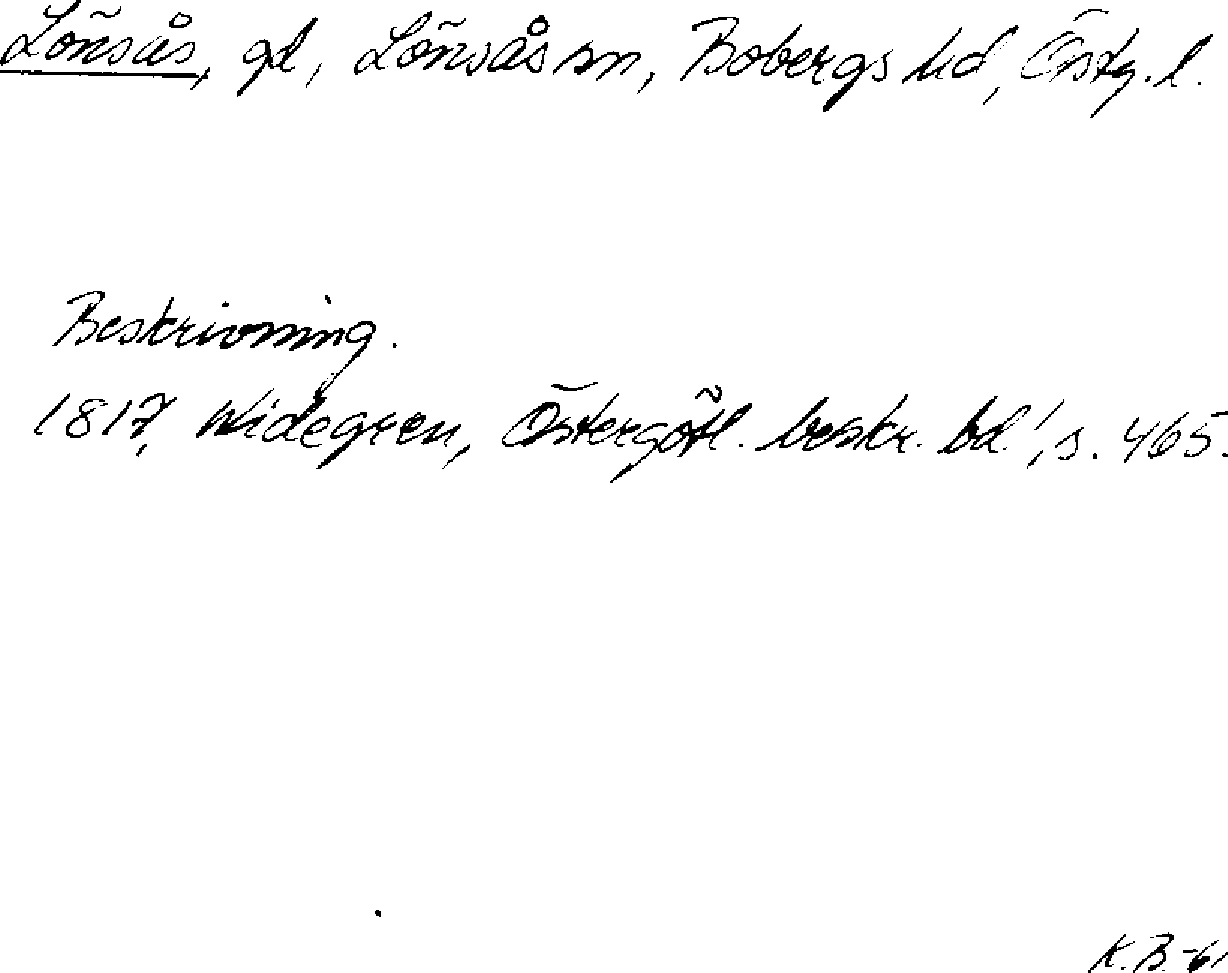 Lönsås, gd, Lönsås sn, Bobergs hd, Östg. l.
Beskrivning.
1817, Widegren, Östergötl. beskr. bd 1, s. 465.
K.B.-61